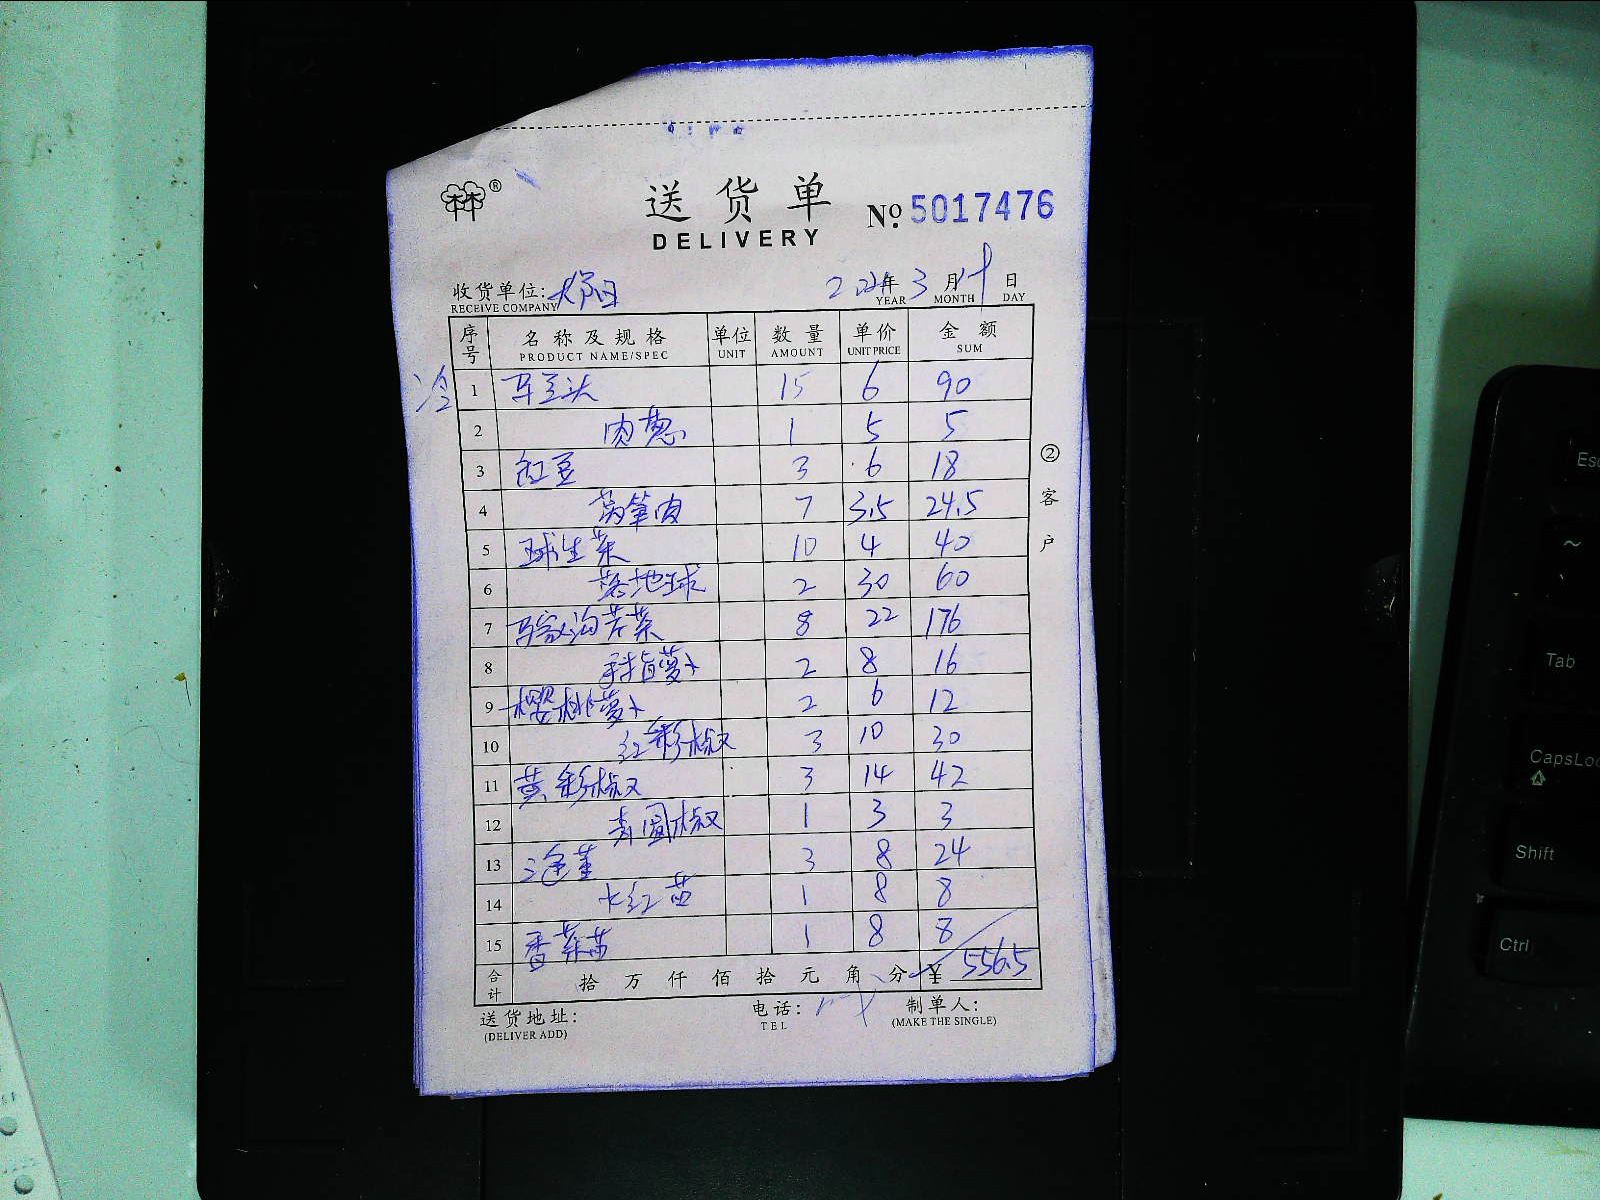 送货单
DELIVERY
№ 5017476
收货单位:
RECEIVE COMPANY
年 3 月 日
YEAR MONTH DAY
序号 名称及规格 单位 数量 单价 金额
PRODUCT NAME/SPEC UNIT AMOUNT UNIT PRICE SUM
冷
1 马兰头 15 6 90
2 肉葱 1 5 5
3 豇豆 3 6 18
4 莴笋肉 7 3.5 24.5
5 球生菜 10 4 40
6 落地球 2 30 60
7 马家沟芹菜 8 22 176
8 手指萝卜 2 8 16
9 樱桃萝卜 2 6 12
10 红彩椒 3 10 30
11 黄彩椒 3 14 42
12 青圆椒 1 3 3
13 三色堇 3 8 24
14 大红苗 1 8 8
15 香菜苗 1 8 8
合计 拾 万 仟 佰 拾 元 角 分 ¥ 556.5
送货地址: 电话: 制单人:
(DELIVER ADD) TEL (MAKE THE SINGLE)
② 客户
Esc
~
Tab
CapsLoc
Shift
Ctrl